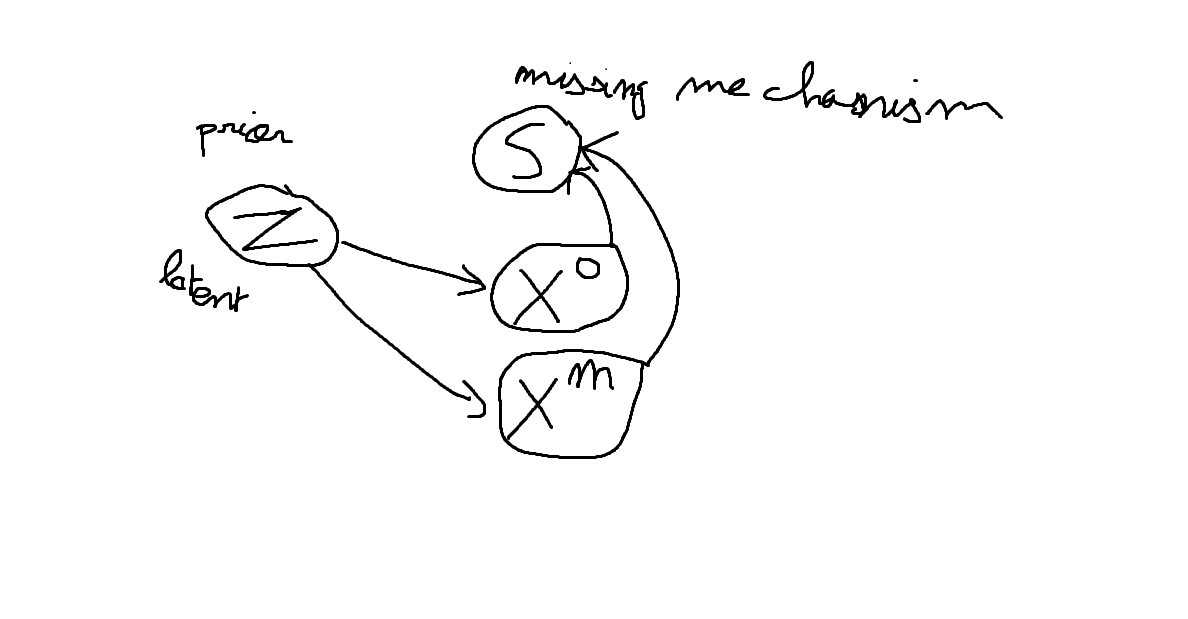 missing mechanism
prior
S
Z
latent
X^o
X^m